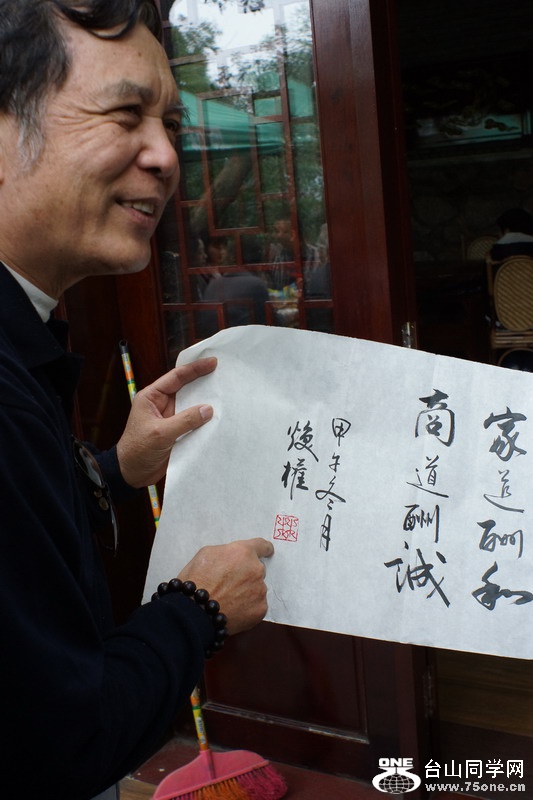 家道酬和
商道酬诚
甲午冬月
焕权
ONE
台山同学网
www.75one.cn